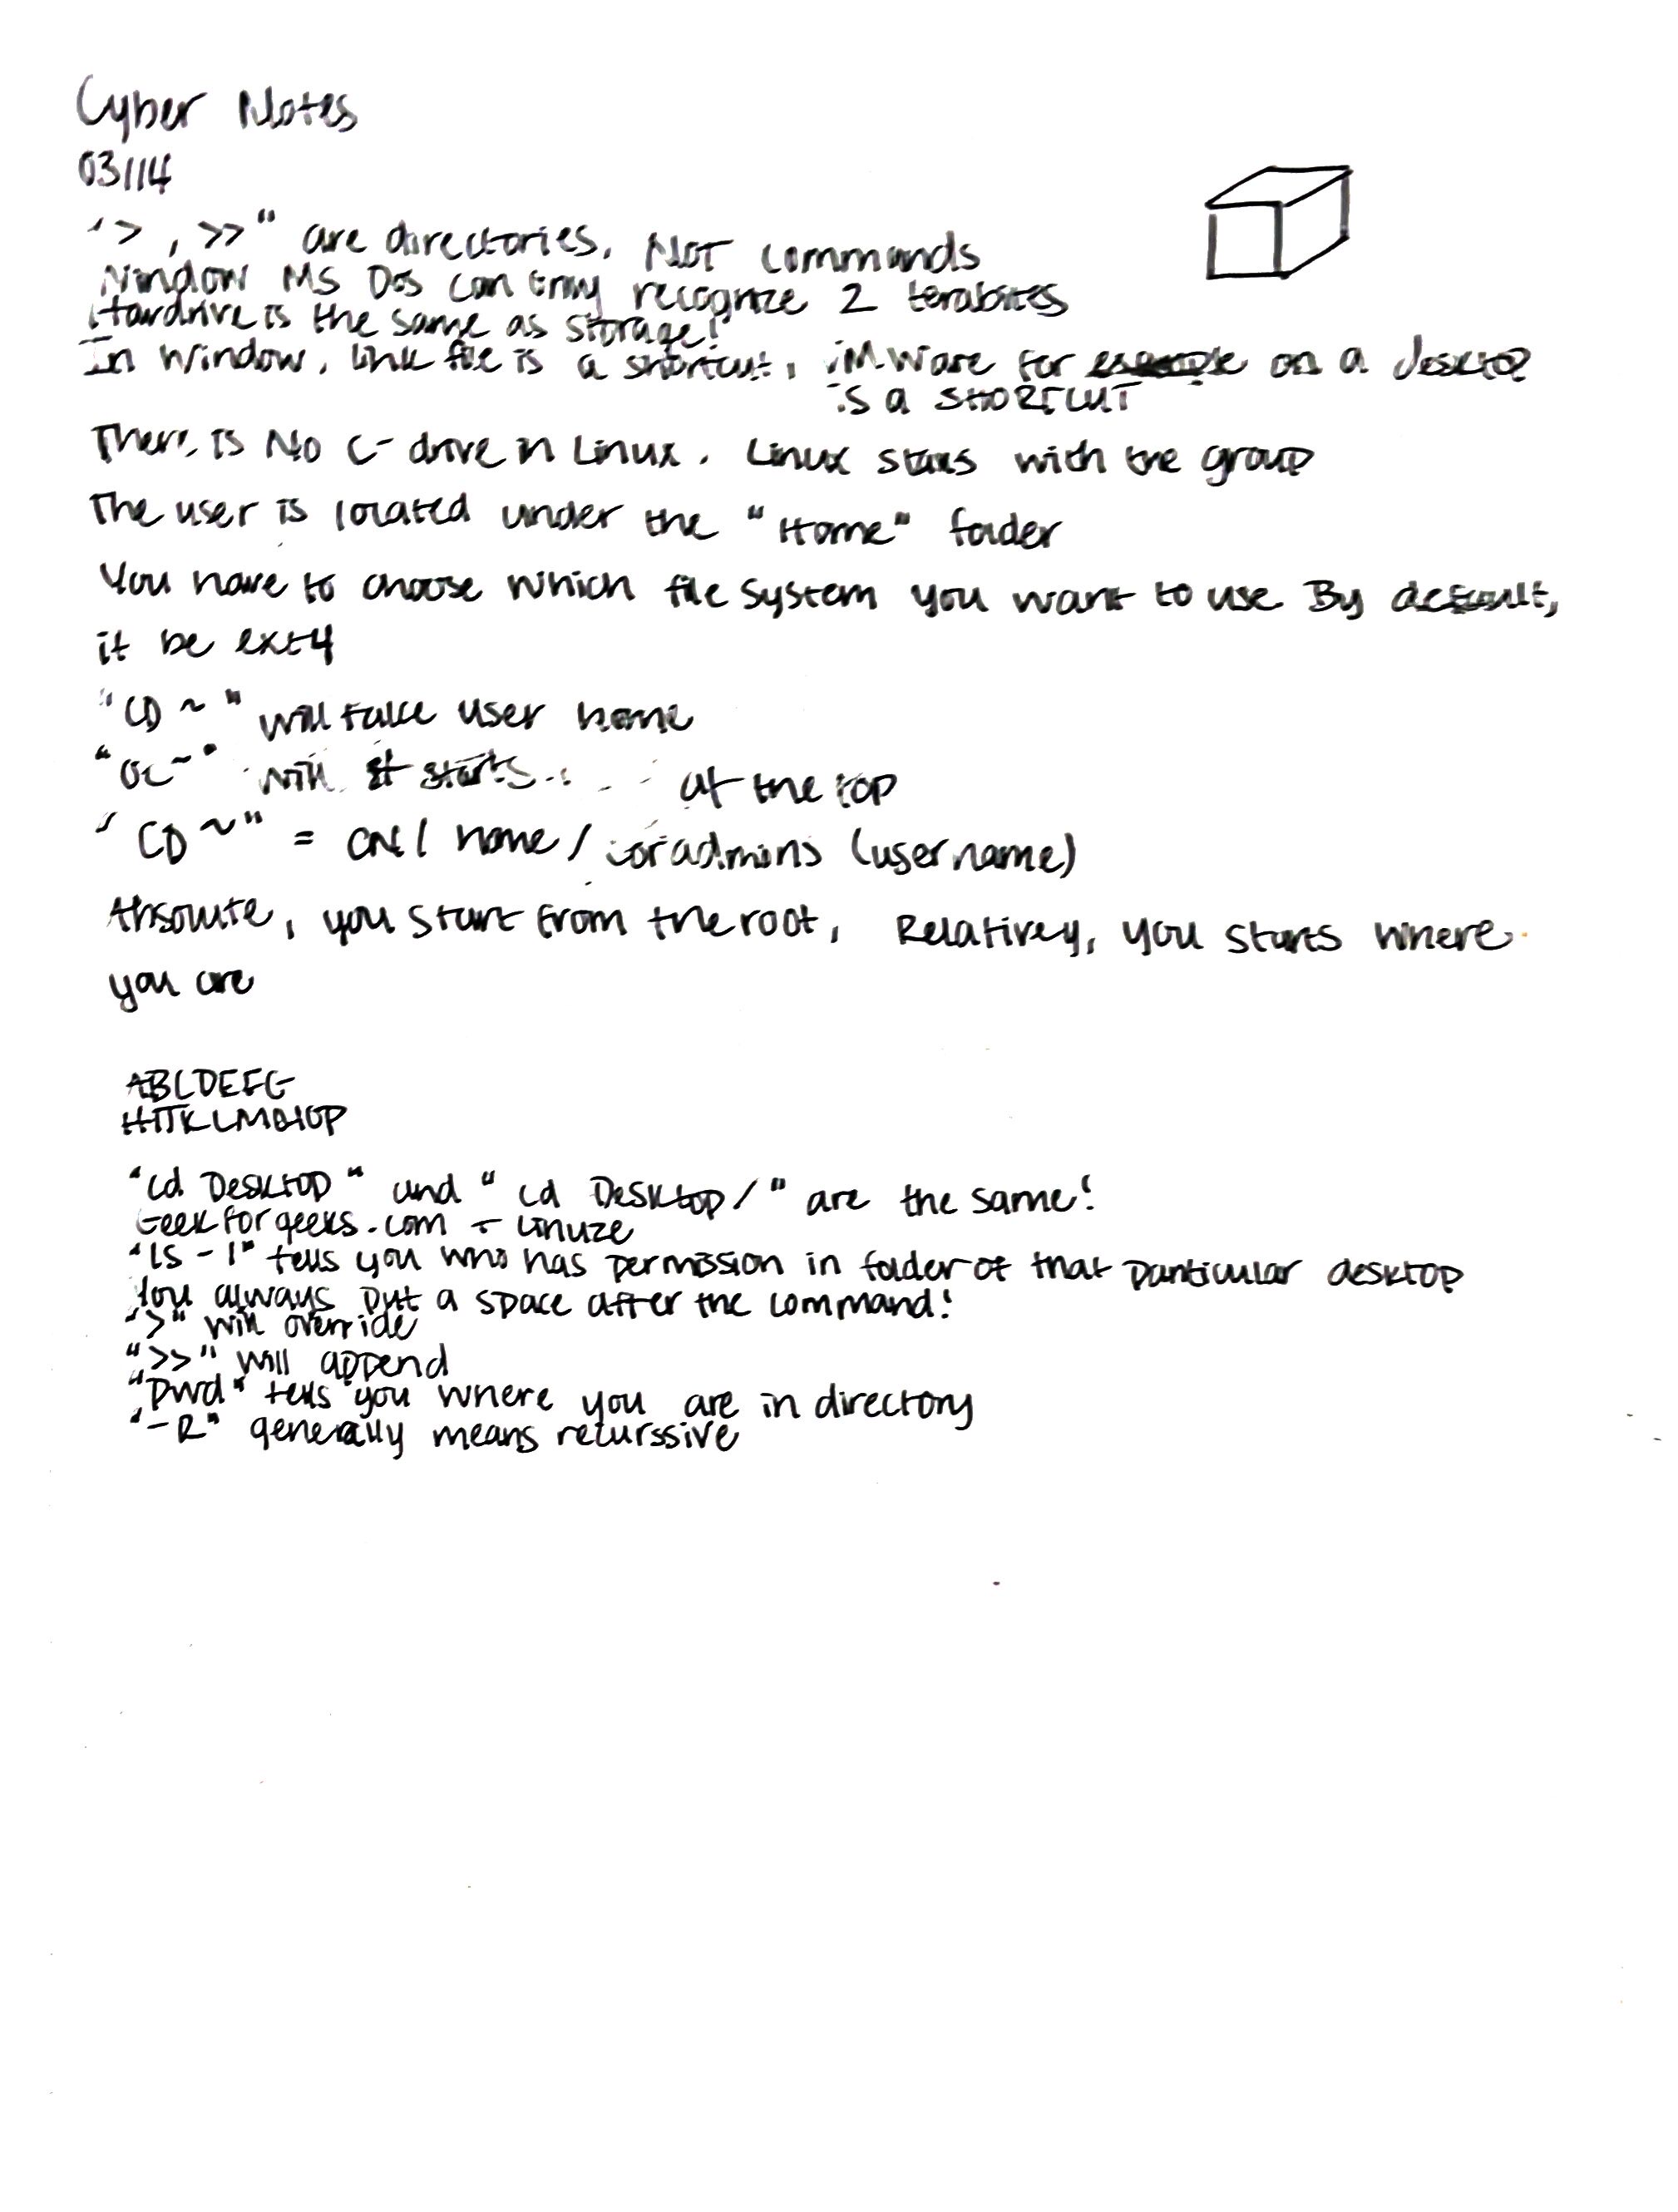 Cyber Notes
03/14
">, >>" are directories, NOT commands
Window MS Dos can only recognize 2 terabites
Hardrive is the same as storage!
In Window, link file is a shortcut, VMWare for example on a desktop
is a SHORTCUT
There is No C-drive in Linux. Linux stars with the group
The user is located under the "Home" folder
You have to choose which file system you want to use By default,
it be ext4
"CD ~" will take user home
will it starts at the top
"CD ~" = / home / (username)
Absolute, you start from the root, Relativey, you starts where
you are
ABCDEFG
"cd Desktop" and "cd Desktop/" are the same!
Geekforgeeks.com - Linuze
"ls -l" tells you who has permission in folder of that particular desktop
You always put a space after the command!
">" will override
">>" will append
"pwd" tells you where you are in directory
"-R" generally means recurssive